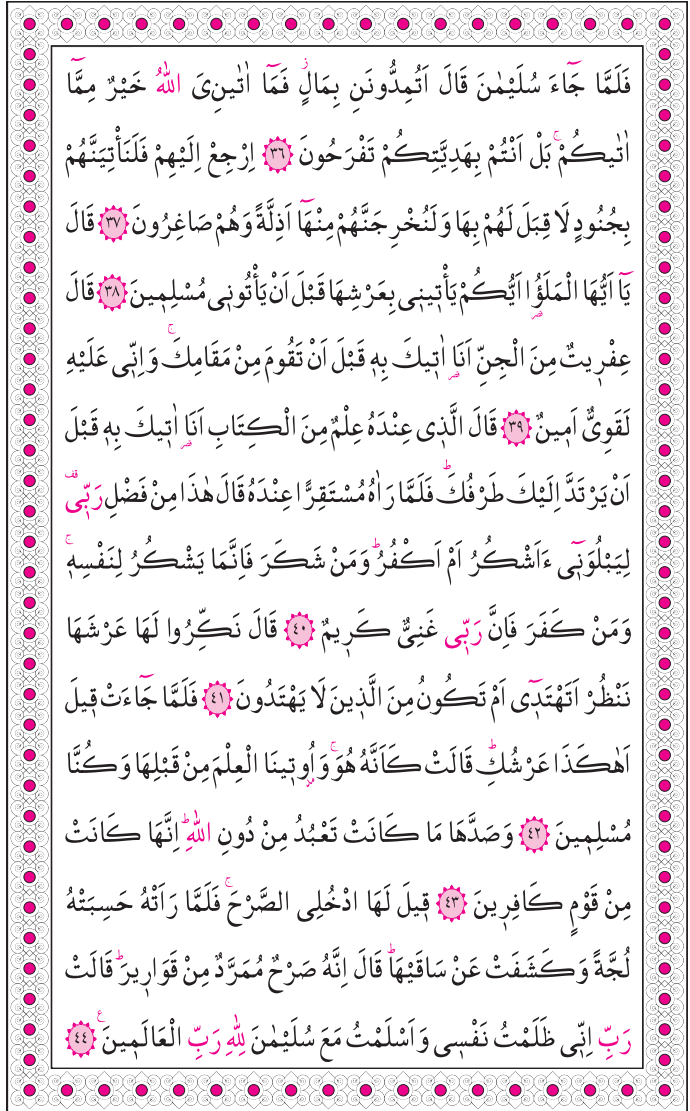 فَلَمَّا جَٓاءَ سُلَيْمٰنَ قَالَ اَتُمِدُّونَنِ بِمَالٍۘ فَمَٓا اٰتٰينِىَ اللّٰهُ خَيْرٌ مِمَّٓا
اٰتٰيكُمْۚ بَلْ اَنْتُمْ بِهَدِيَّتِكُمْ تَفْرَحُونَ ﴿٣٦﴾ اِرْجِعْ اِلَيْهِمْ فَلَنَأْتِيَنَّهُمْ
بِجُنُودٍ لَا قِبَلَ لَهُمْ بِهَا وَلَنُخْرِجَنَّهُمْ مِنْهَٓا اَذِلَّةً وَهُمْ صَاغِرُونَ ﴿٣٧﴾ قَالَ
يَٓا اَيُّهَا الْمَلَؤُ۬ا اَيُّكُمْ يَأْتٖينٖى بِعَرْشِهَا قَبْلَ اَنْ يَأْتُونٖى مُسْلِمٖينَ ﴿٣٨﴾ قَالَ
عِفْرٖيتٌ مِنَ الْجِنِّ اَنَا۬ اٰتٖيكَ بِهٖ قَبْلَ اَنْ تَقُومَ مِنْ مَقَامِكَۚ وَاِنّٖى عَلَيْهِ
لَقَوِىٌّ اَمٖينٌ ﴿٣٩﴾ قَالَ الَّذٖى عِنْدَهُ عِلْمٌ مِنَ الْكِتَابِ اَنَا۬ اٰتٖيكَ بِهٖ قَبْلَ
اَنْ يَرْتَدَّ اِلَيْكَ طَرْفُكَۜ فَلَمَّا رَاٰهُ مُسْتَقِرًّا عِنْدَهُ قَالَ هٰذَا مِنْ فَضْلِ رَبّٖى۠
لِيَبْلُوَنٖٓى ءَاَشْكُرُ اَمْ اَكْفُرُۜ وَمَنْ شَكَرَ فَاِنَّمَا يَشْكُرُ لِنَفْسِهٖۚ
وَمَنْ كَفَرَ فَاِنَّ رَبّٖى غَنِىٌّ كَرٖيمٌ ﴿٤٠﴾ قَالَ نَكِّرُوا لَهَا عَرْشَهَا
نَنْظُرْ اَتَهْتَدٖٓى اَمْ تَكُونُ مِنَ الَّذٖينَ لَا يَهْتَدُونَ ﴿٤١﴾ فَلَمَّا جَٓاءَتْ قٖيلَ
اَهٰكَذَا عَرْشُكِۜ قَالَتْ كَاَنَّهُ هُوَۚ وَاُو۫تٖينَا الْعِلْمَ مِنْ قَبْلِهَا وَكُنَّا
مُسْلِمٖينَ ﴿٤٢﴾ وَصَدَّهَا مَا كَانَتْ تَعْبُدُ مِنْ دُونِ اللّٰهِۜ اِنَّهَا كَانَتْ
مِنْ قَوْمٍ كَافِرٖينَ ﴿٤٣﴾ قٖيلَ لَهَا ادْخُلِى الصَّرْحَۚ فَلَمَّا رَاَتْهُ حَسِبَتْهُ
لُجَّةً وَكَشَفَتْ عَنْ سَاقَيْهَاۜ قَالَ اِنَّهُ صَرْحٌ مُمَرَّدٌ مِنْ قَوَارٖيرَۜ قَالَتْ
رَبِّ اِنّٖى ظَلَمْتُ نَفْسٖى وَاَسْلَمْتُ مَعَ سُلَيْمٰنَ لِلّٰهِ رَبِّ الْعَالَمٖينَ ﴿٤٤﴾